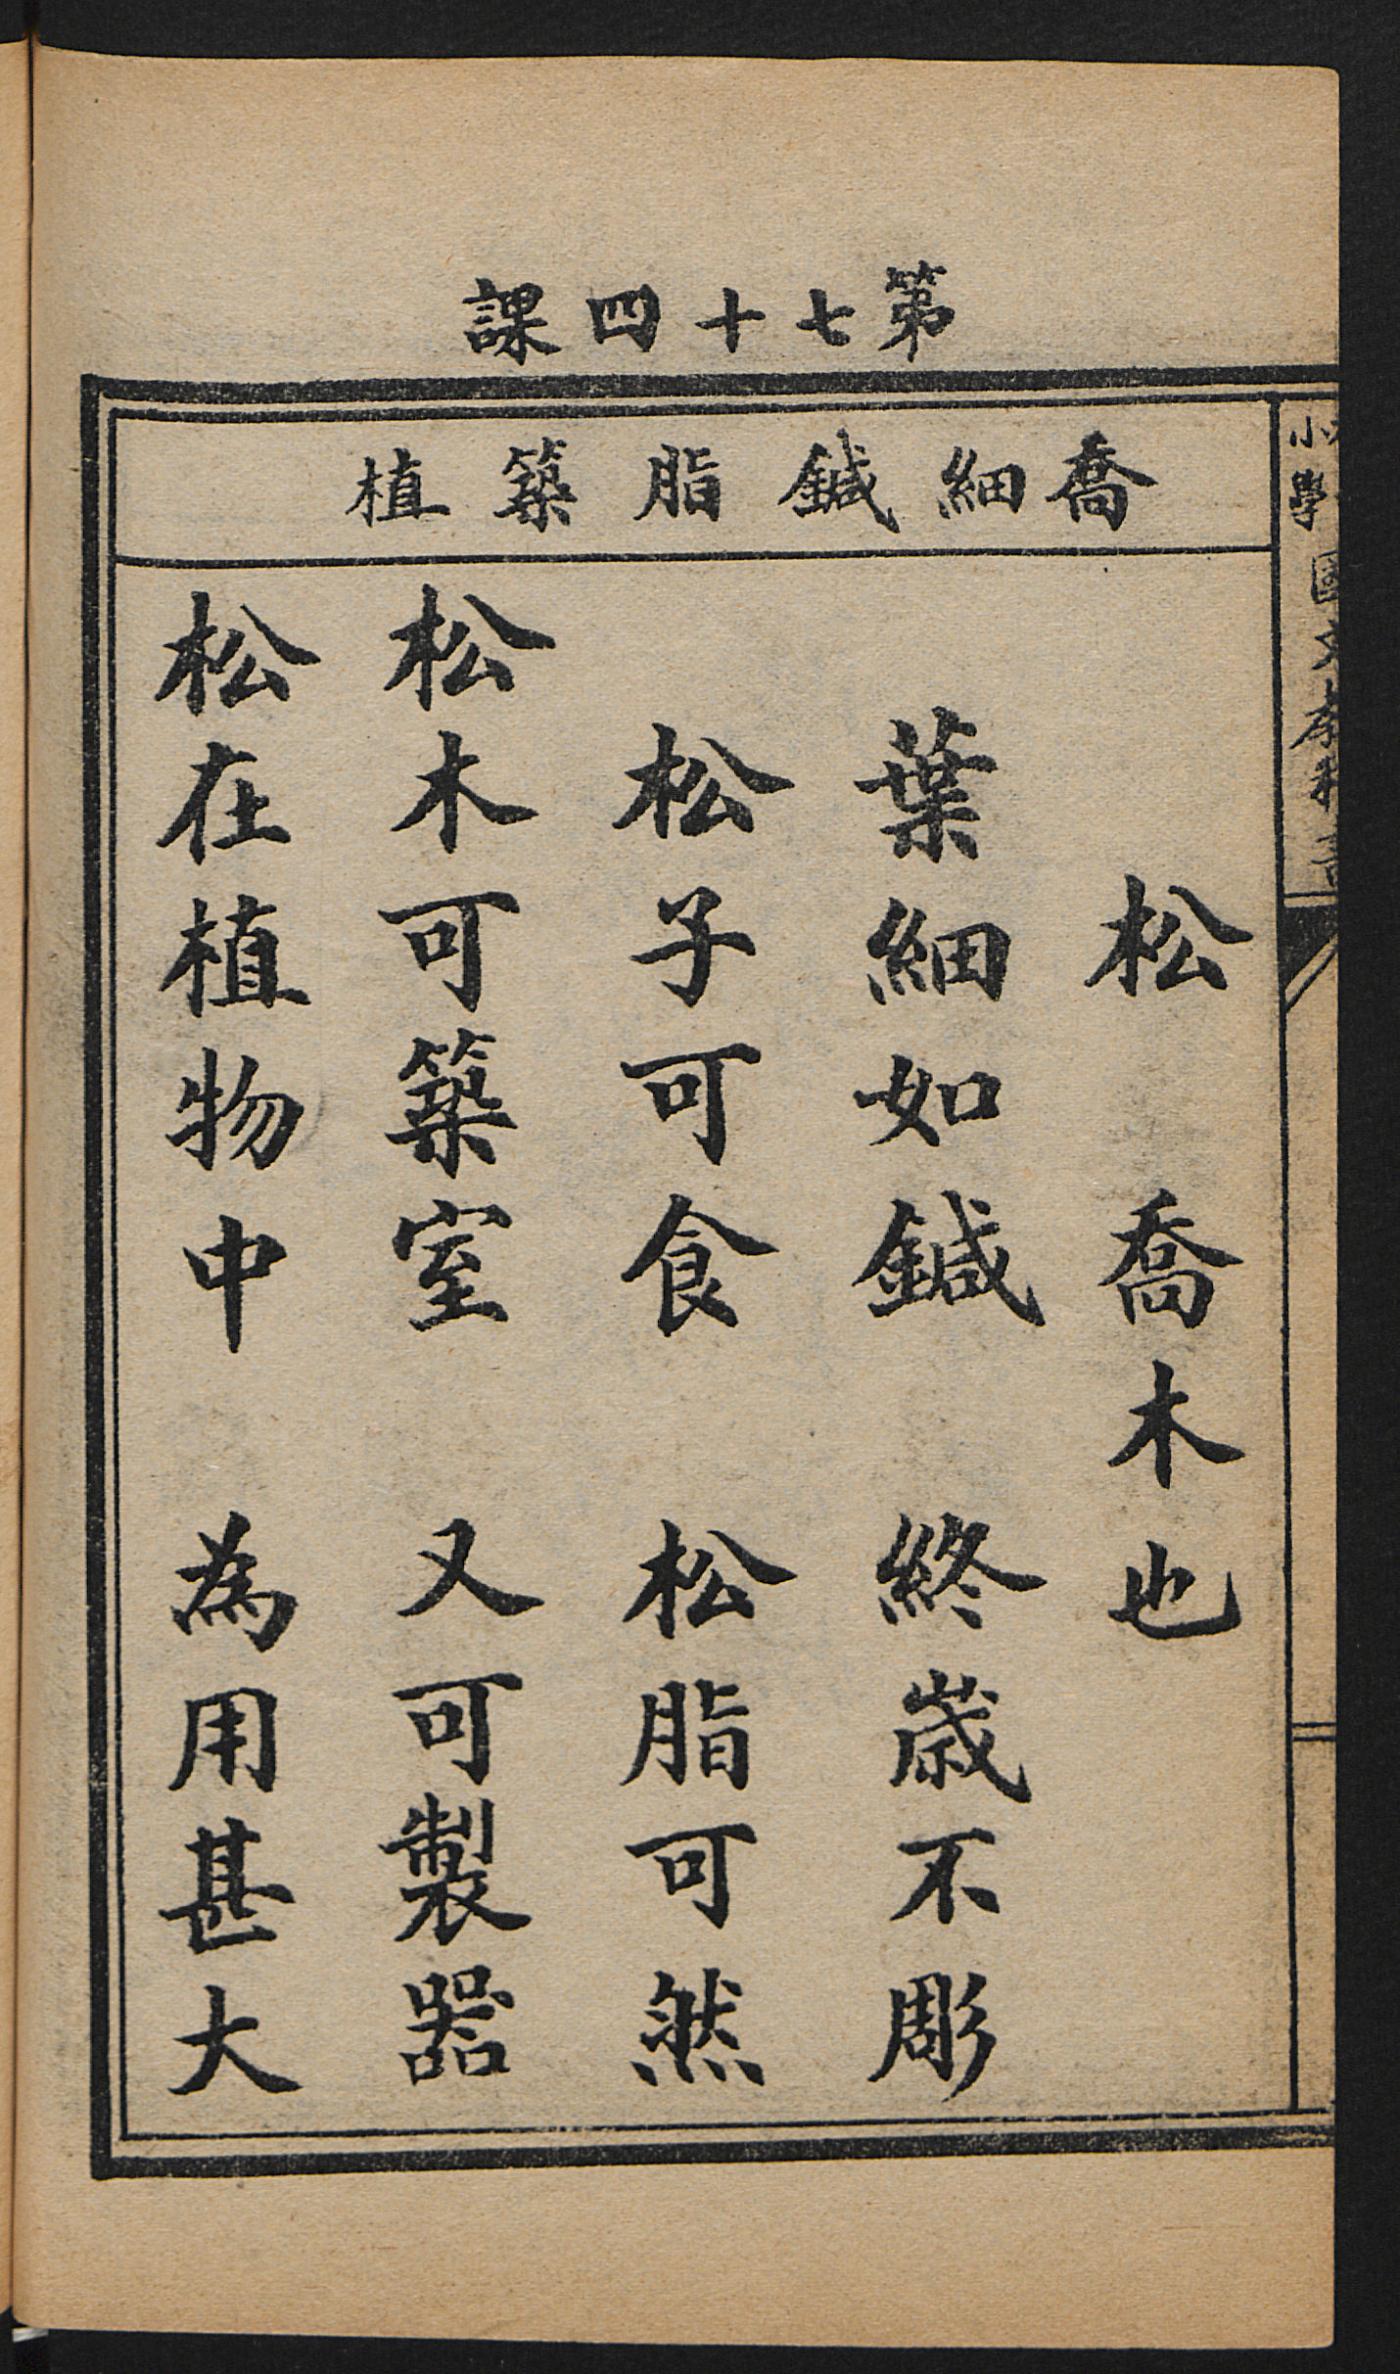 第七十四課
喬細鍼脂築植
松　喬木也
葉細如鍼　終歲不彫
松子可食　松脂可然
松木可築室　又可製器
松在植物中　為用甚大
小學國文